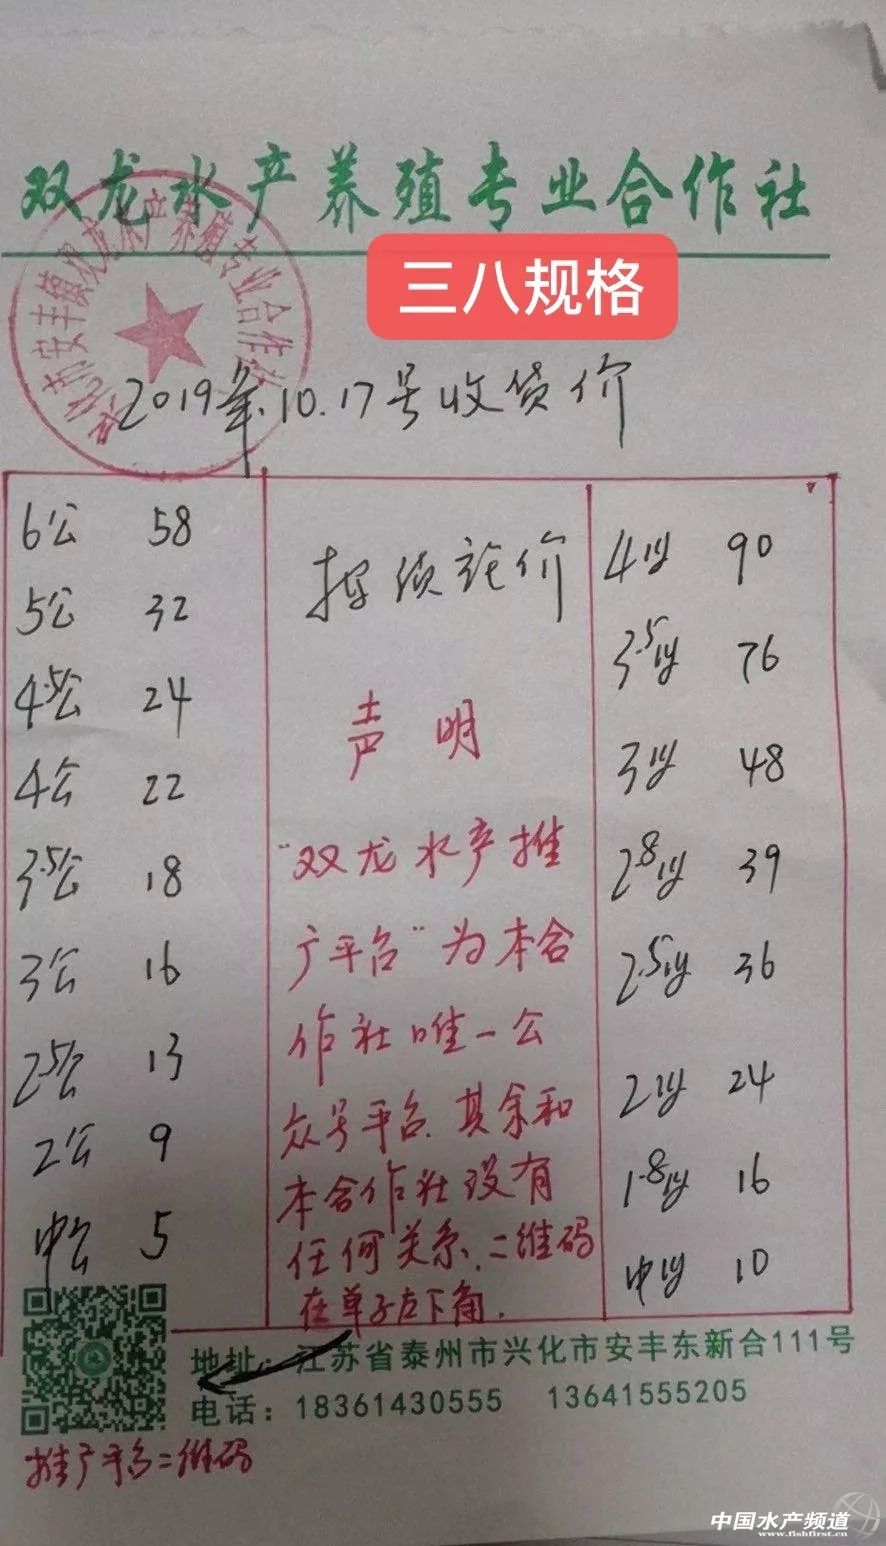 双龙水产养殖专业合作社
三八规格
兴化市安丰镇双龙水产养殖专业合作社
2019年.10.17号收货价
6公 58
5公 32
4.5公 24
4公 22
3.5公 18
3公 16
2.5公 13
2公 9
中公 5
按质论价
声明
"双龙水产推
广平台"为本合
作社唯一公
众号平台.其余和
本合作社没有
任何关系.二维码
在单子左下角.
4母 90
3.5母 76
3母 48
2.8母 39
2.5母 36
2母 24
1.8母 16
中母 10
地址：江苏省泰州市兴化市安丰东新合111号
电话：18361430555 13641555205
推广平台二维码
中国水产频道
www.fishfirst.cn